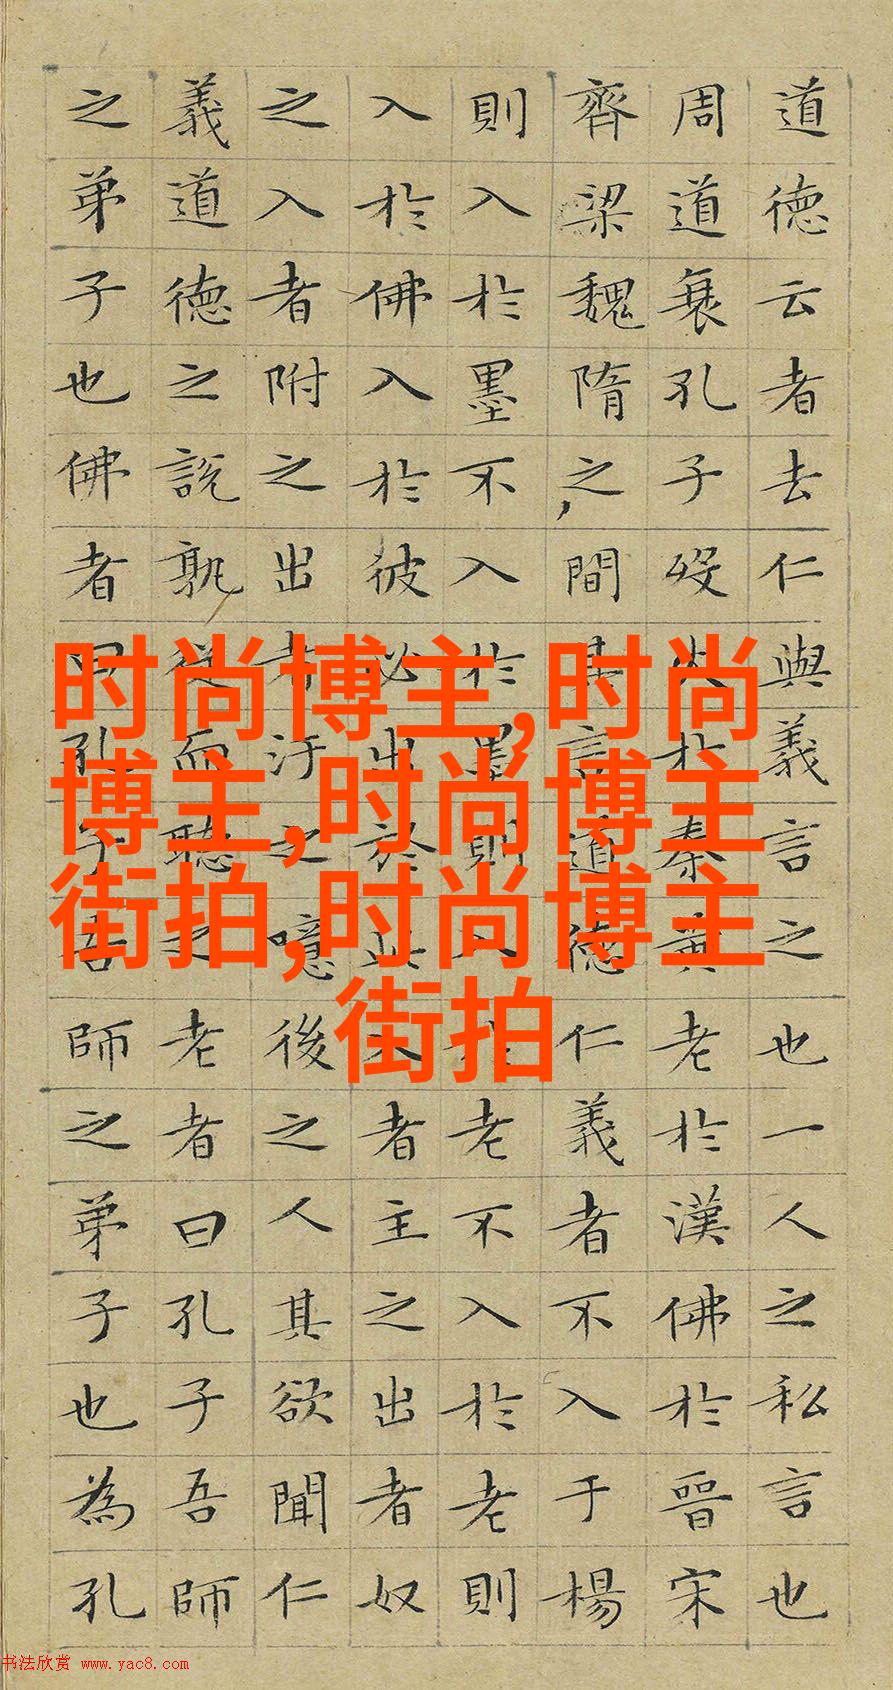 道德云者去仁與義言之也一人之私言也
周道衰孔子歿火於秦黃老於漢佛於晉宋
齊梁魏隋之間其言道德仁義者不入于楊
則入於墨不入於墨則入於老不入於老則
入於佛入於彼必出於此入者主之出者奴
之入者附之出者汙之噫後之人其欲聞仁
義道德之說孰從而聽之老者曰孔子吾師
之弟子也佛者曰孔子吾師之弟子也為孔
时尚博主,时尚
博主,时尚博主
街拍,时尚博主
街拍
书法欣赏 www.yac8.com